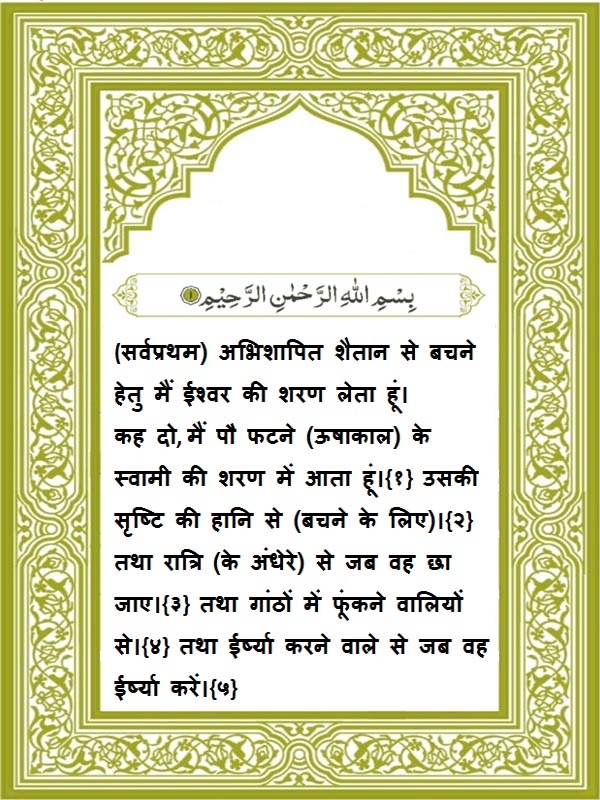 بِسْمِ اللهِ الرَّحْمٰنِ الرَّحِيْمِ ١
(सर्वप्रथम) अभिशापित शैतान से बचने
हेतु मैं ईश्वर की शरण लेता हूं।
कह दो, मैं पौ फटने (ऊषाकाल) के
स्वामी की शरण में आता हूं।{१} उसकी
सृष्टि की हानि से (बचने के लिए)।{२}
तथा रात्रि (के अंधेरे) से जब वह छा
जाए।{३} तथा गांठों में फूंकने वालियों
से।{४} तथा ईर्ष्या करने वाले से जब वह
ईर्ष्या करें।{५}